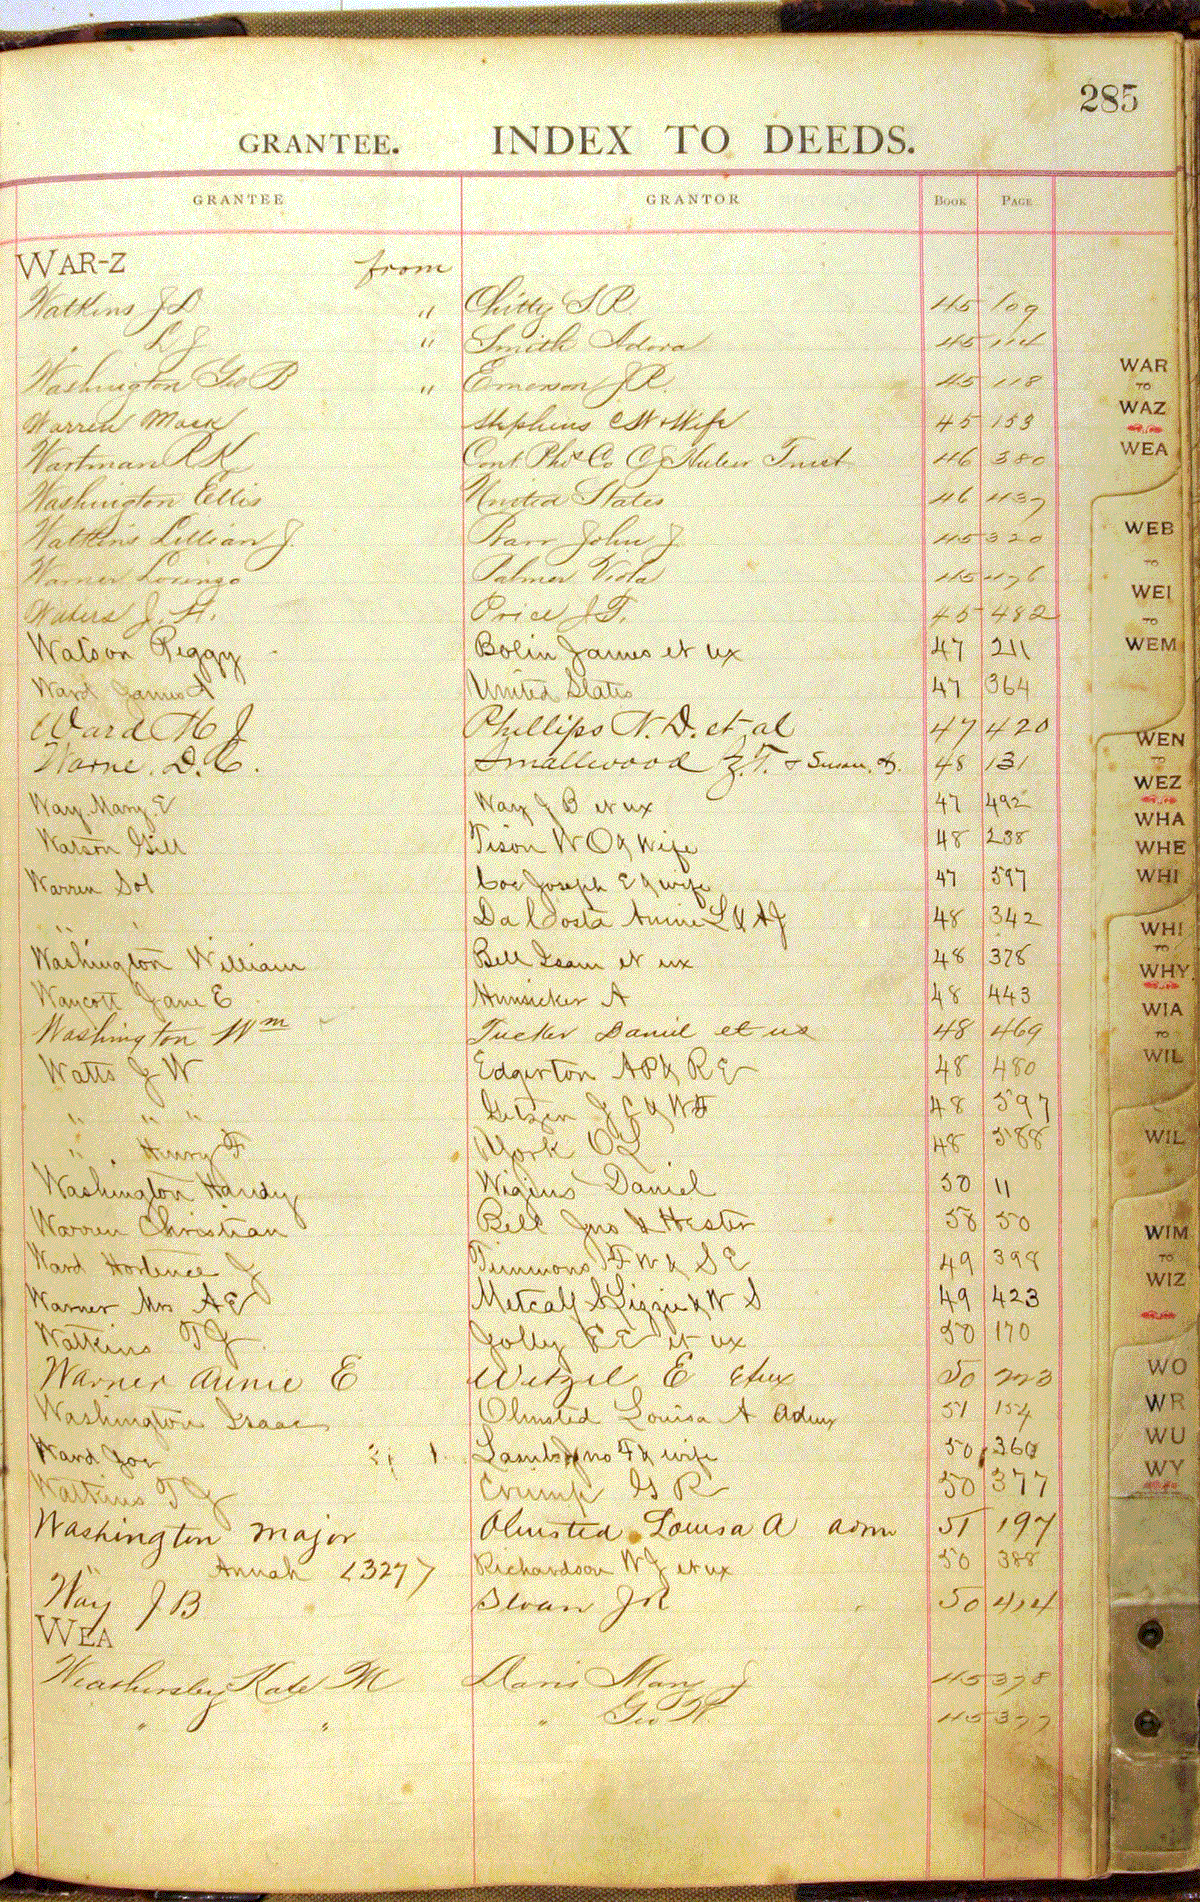 285
GRANTEE. INDEX TO DEEDS.
GRANTEE GRANTOR BOOK PAGE
WAR-Z from
Watkins J D " Chitty S R 45 109
" L J " Smith Adora 45 114
Washington Geo B " Emerson J R. 45 118
Warren Mack Stephens C W & Wife 45 153
Wartman R K Cont Pho. Co C J Huber Trust 46 380
Washington Ellis United States 46 437
Watkins Lillian J. Barr John J. 45 320
Warner Loringo Palmer Viola 45 476
Waters J. H. Price J T. 45 482
Watson Peggy Bolin James et ux 47 211
Ward James A United States 47 364
Ward H J Phillips N. D. et al 47 420
Warne. D. C. Smallwood Z. T. & Susan. D. 48 131
Way Mary E Way J B et ux 47 492
Watson Gill Tison W O & Wife 48 238
Warren Sol Coe Joseph E & wife 47 597
" " Da Costa Annie L & A J 48 342
Washington William Bell Isam et ux 48 378
Waycott Jane E Hunsicker A 48 443
Washington Wm Tucker Daniel et ux 48 469
Watts J W Edgerton A P & R E 48 480
" " " Getzen J C & W F 48 597
" Henry F York O L 48 588
Washington Handy Wigins Daniel 50 11
Warren Christian Bell Jno & Hester 50 50
Ward Hortence J Timmons F W & S E 49 398
Warner Mrs A E Metcalf S Lizzie & W S 49 423
Watkins T J Jolly E E et ux 50 170
Warner Annie E Wetzel E et ux 50 223
Washington Isaac Olmsted Louisa A admx 51 154
Ward Joe Lamb Jno F & wife 50 360
Watkins T J Crump G R 50 377
Washington Major Olmsted Louisa A adm 51 197
" Annah <327> Richardson W J et ux 50 388
Way J B Sloan J R 50 414
WEA
Weathersby Kate M Davis Mary J 45 378
" " " Geo W. 45 377
WAR
TO
WAZ
WEA
WEB
TO
WEI
TO
WEM
WEN
TO
WEZ
WHA
WHE
WHI
WHI
TO
WHY.
WIA
TO
WIL
WIL
WIM
TO
WIZ
WO
WR
WU
WY